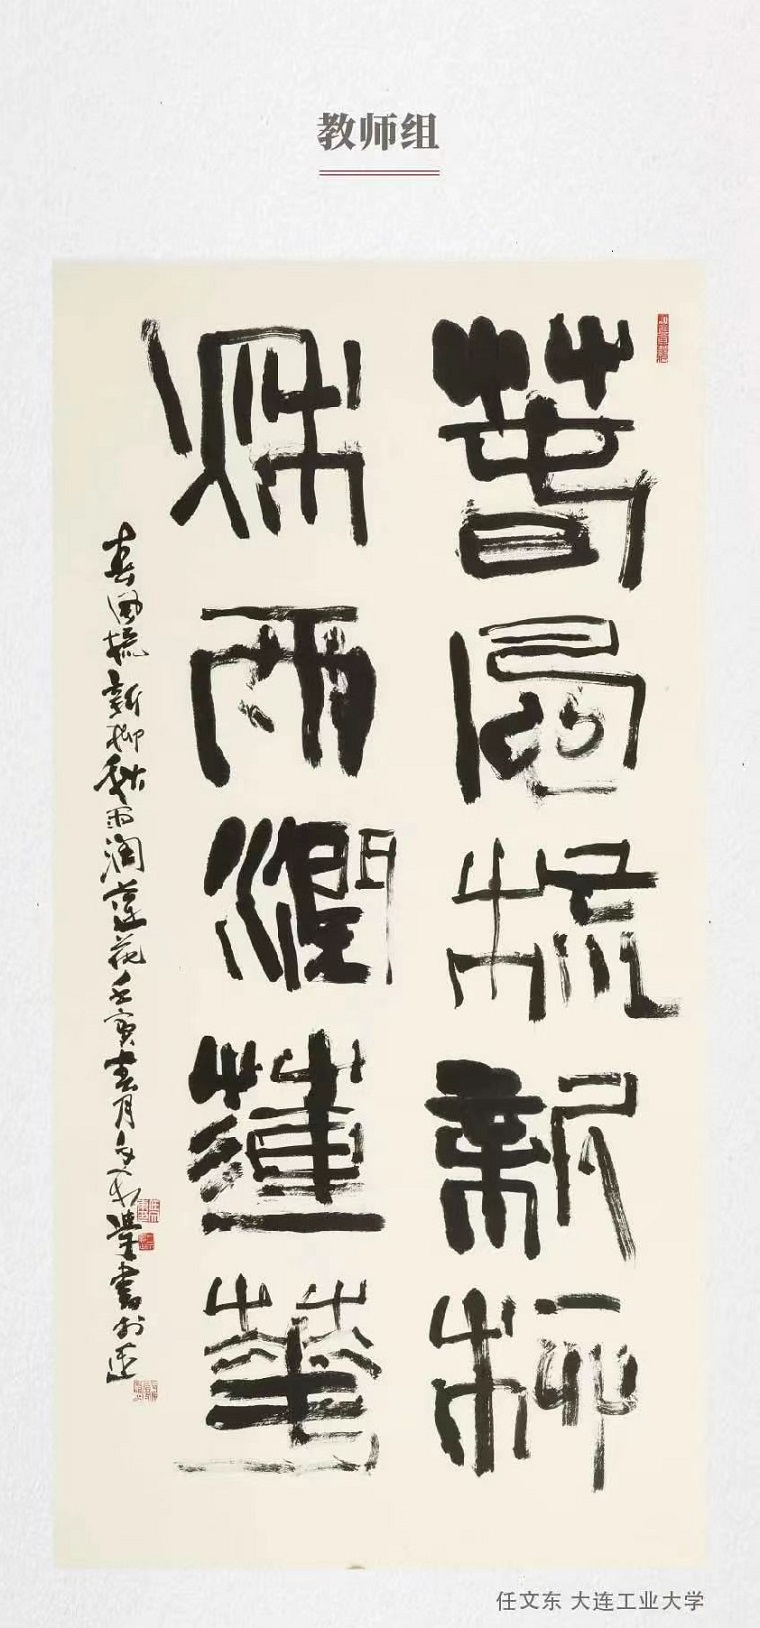 教师组
春風梳新柳
秋雨潤蓮華
春風梳新柳秋雨润蓮花壬寅春月文東學書於連
任文东 大连工业大学